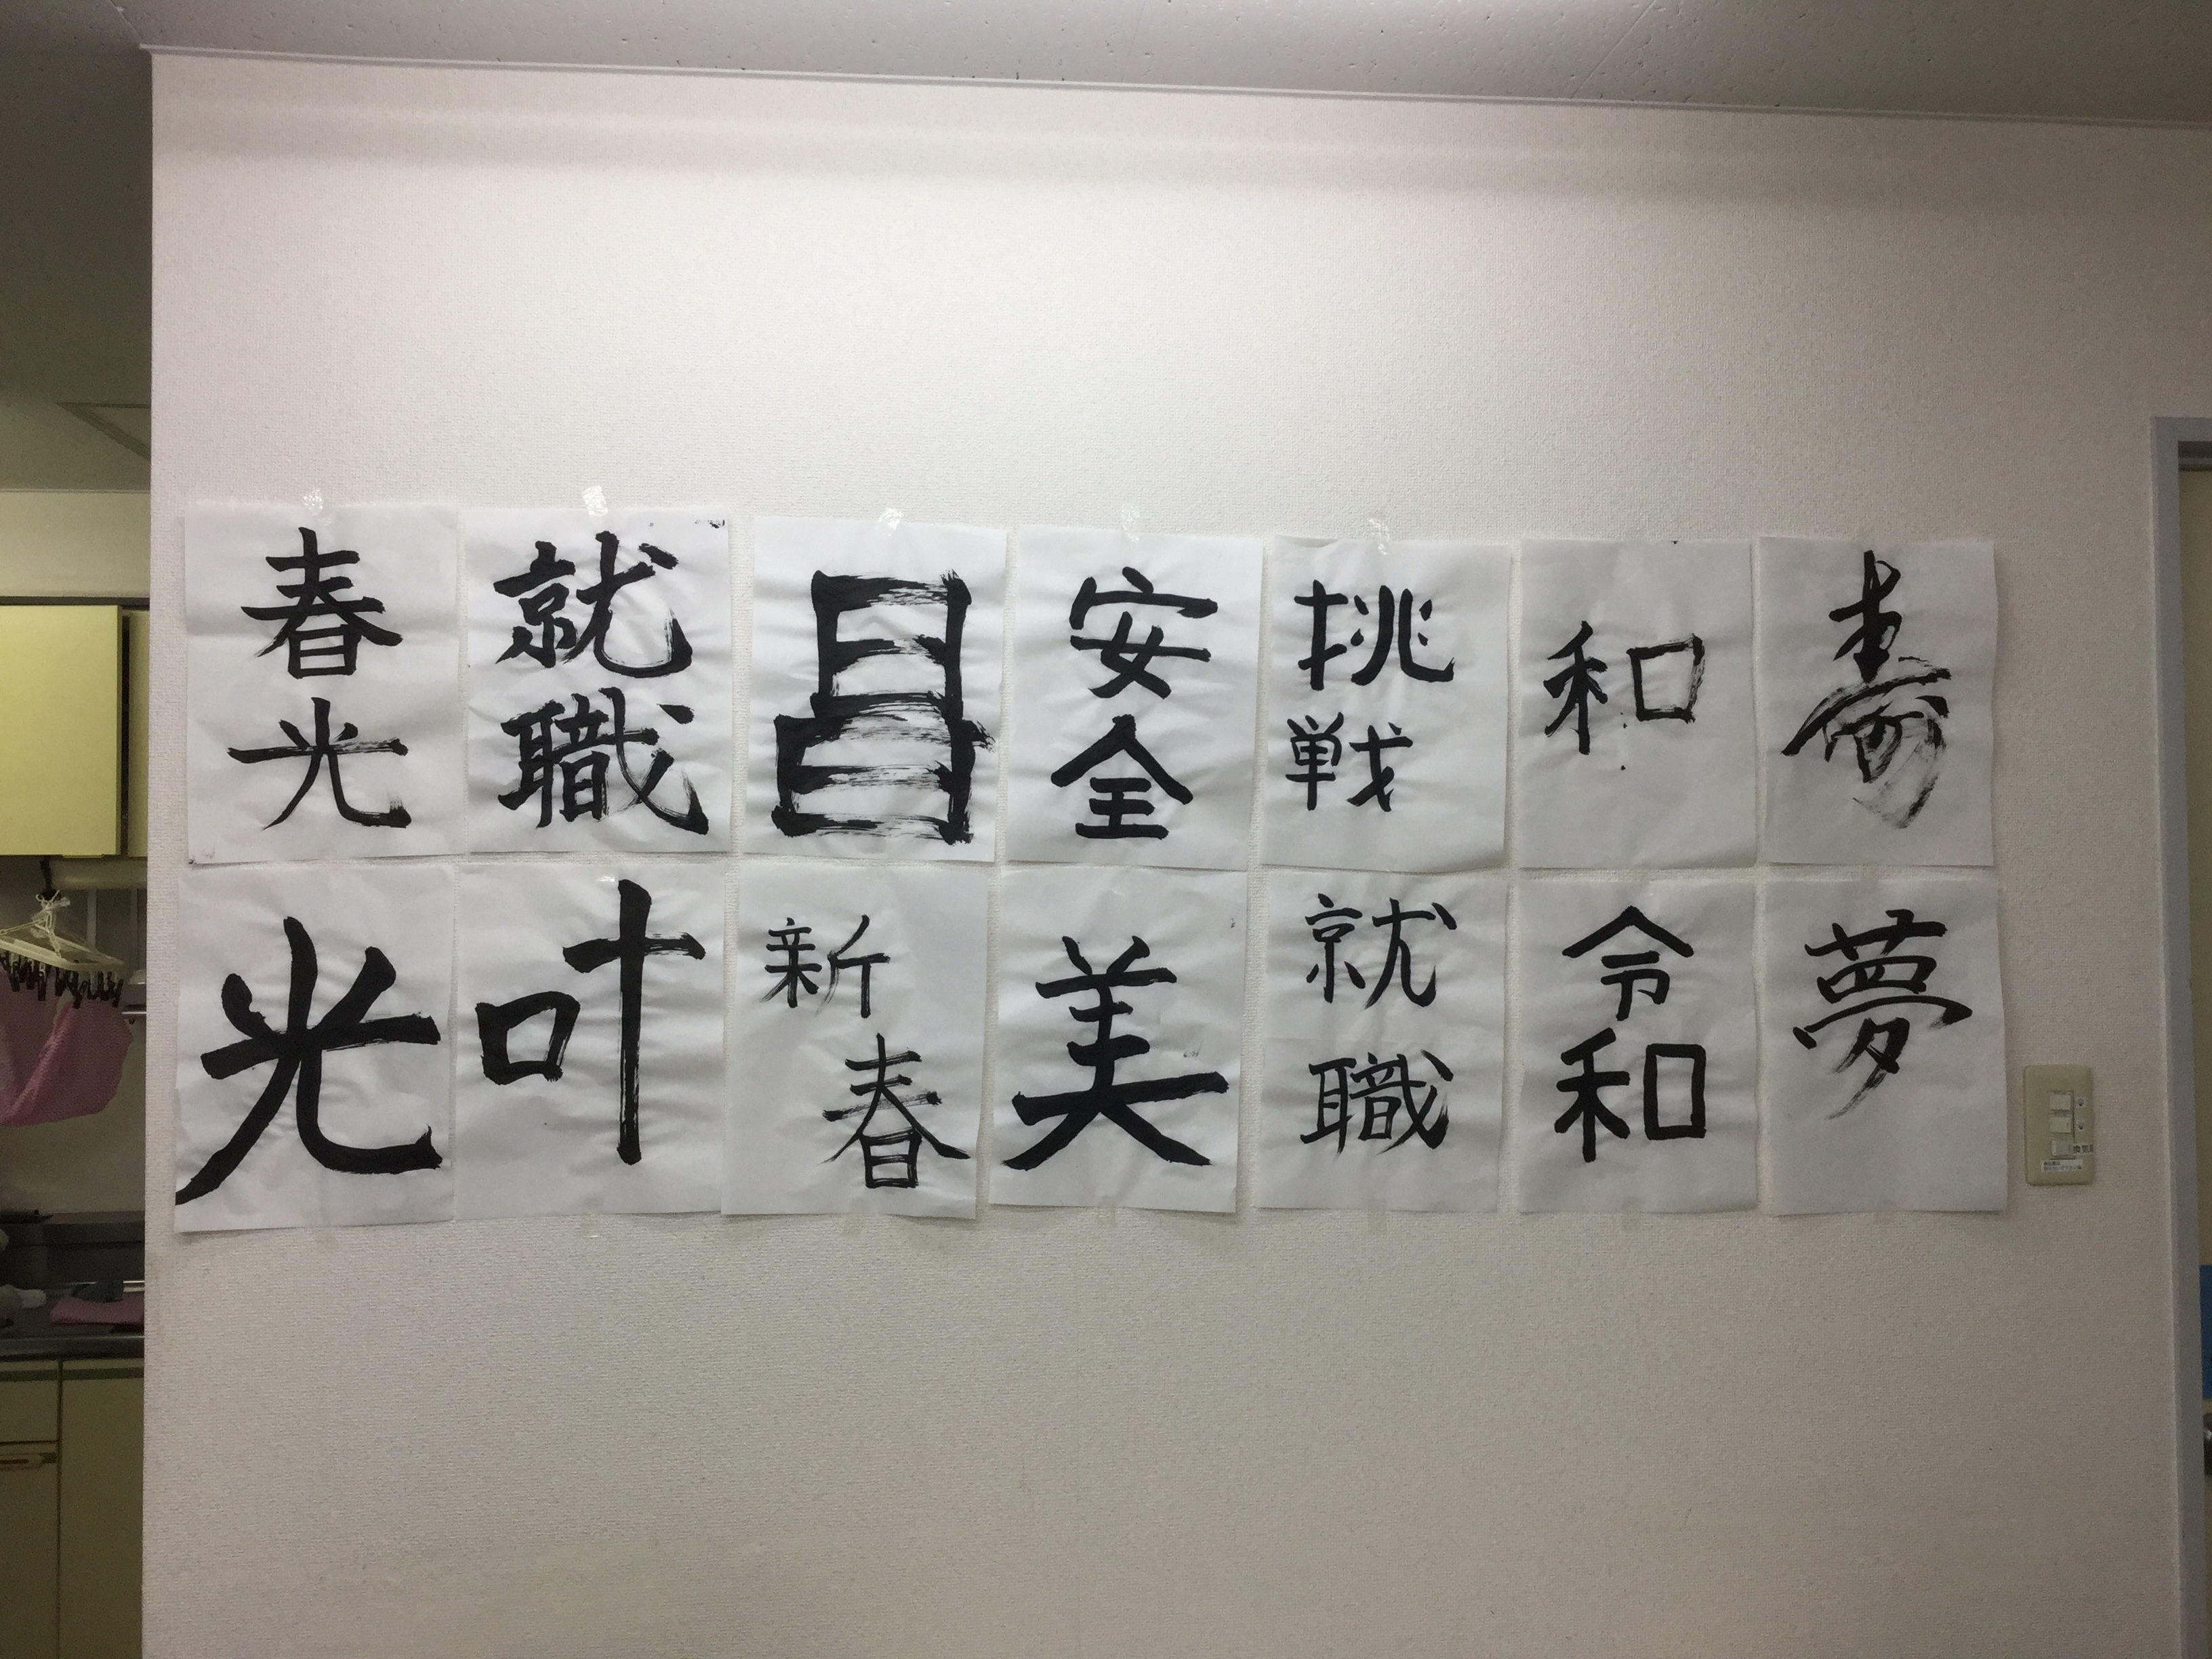 春光
就職
安全
挑戦
和
寿
光
叶
新春
美
就職
令和
夢